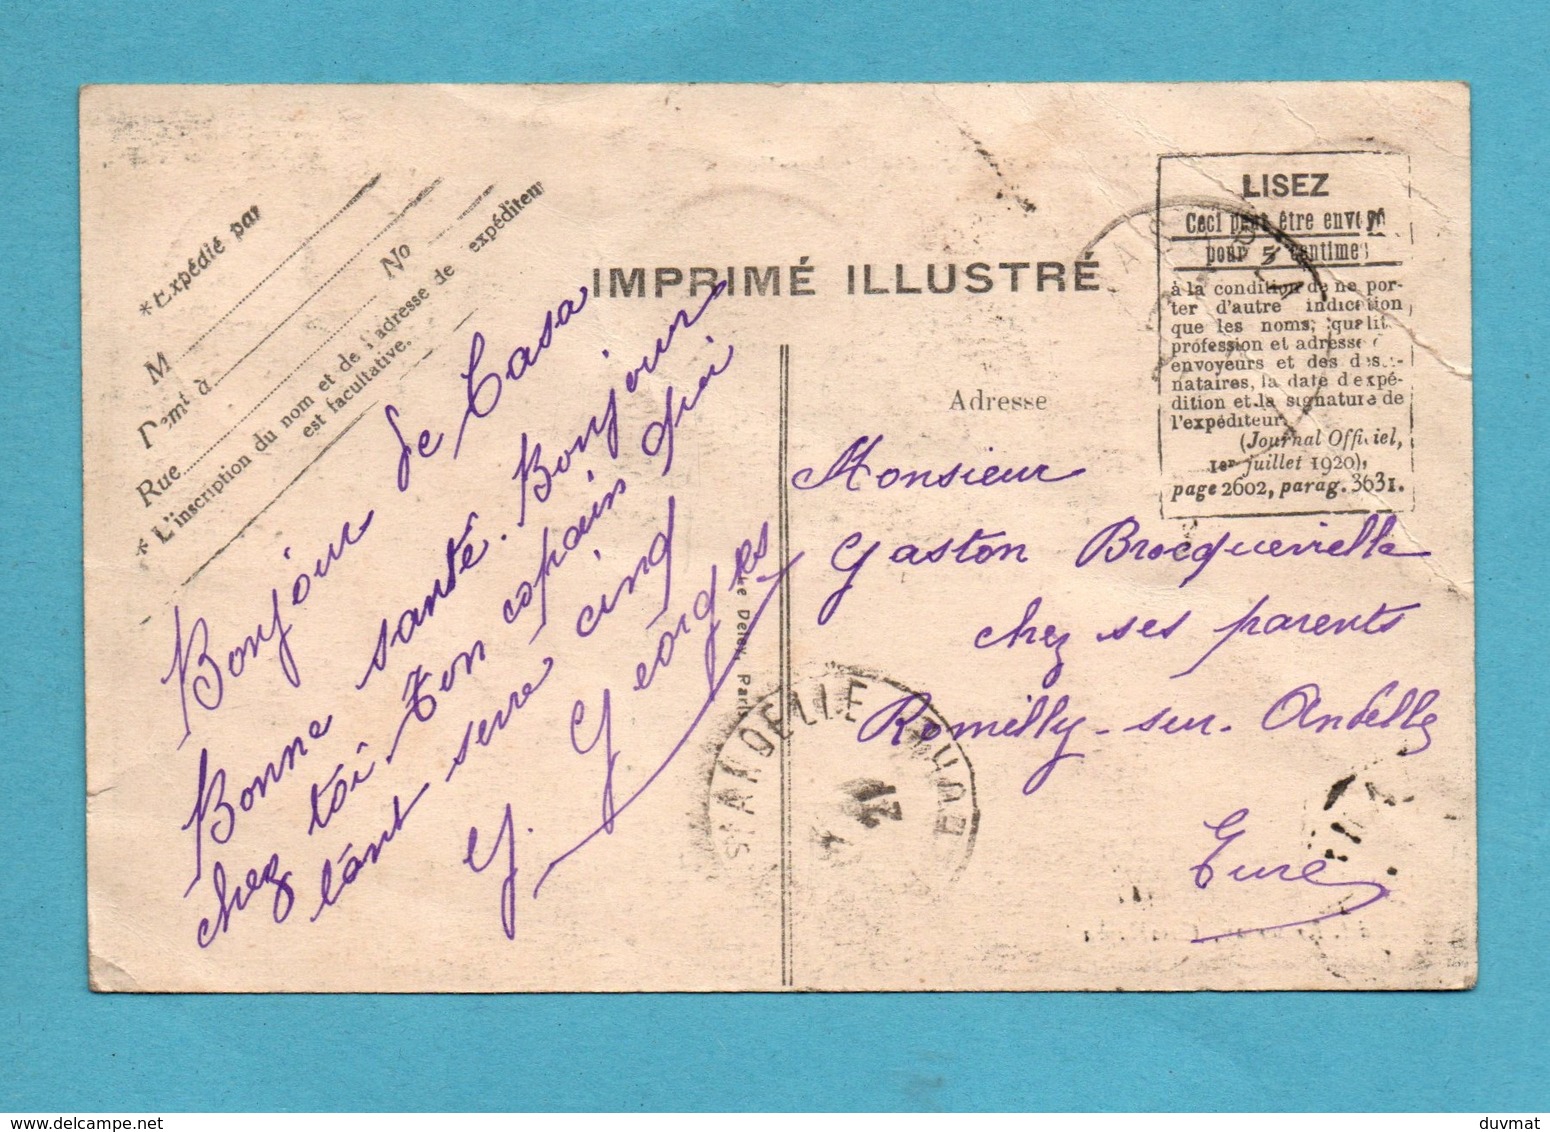 *Expédié par
M
Demt à
Rue No
* L'inscription du nom et de l'adresse de expéditeur
est facultative.
IMPRIMÉ ILLUSTRÉ
LISEZ
Ceci peut être envoyé
pour 5 centimes
à la condition de ne por-
ter d'autre indication
que les noms, qualit
profession et adresse
envoyeurs et des des-
nataires, la date d'expé-
dition et la signature de
l'expéditeur.
(Journal Officiel,
1er juillet 1920),
page 2602, parag. 3631.
Adresse
Bonjour de Casa
Bonne santé. Bonjour
chez toi ton copain qui
t'en serre cinq
Georges
G.
Monsieur
Gaston Brocquevielle
chez ses parents
Romilly-sur-Andelle
Eure
Deley, Paris
S/ANDELLE EURE
21
duvmat